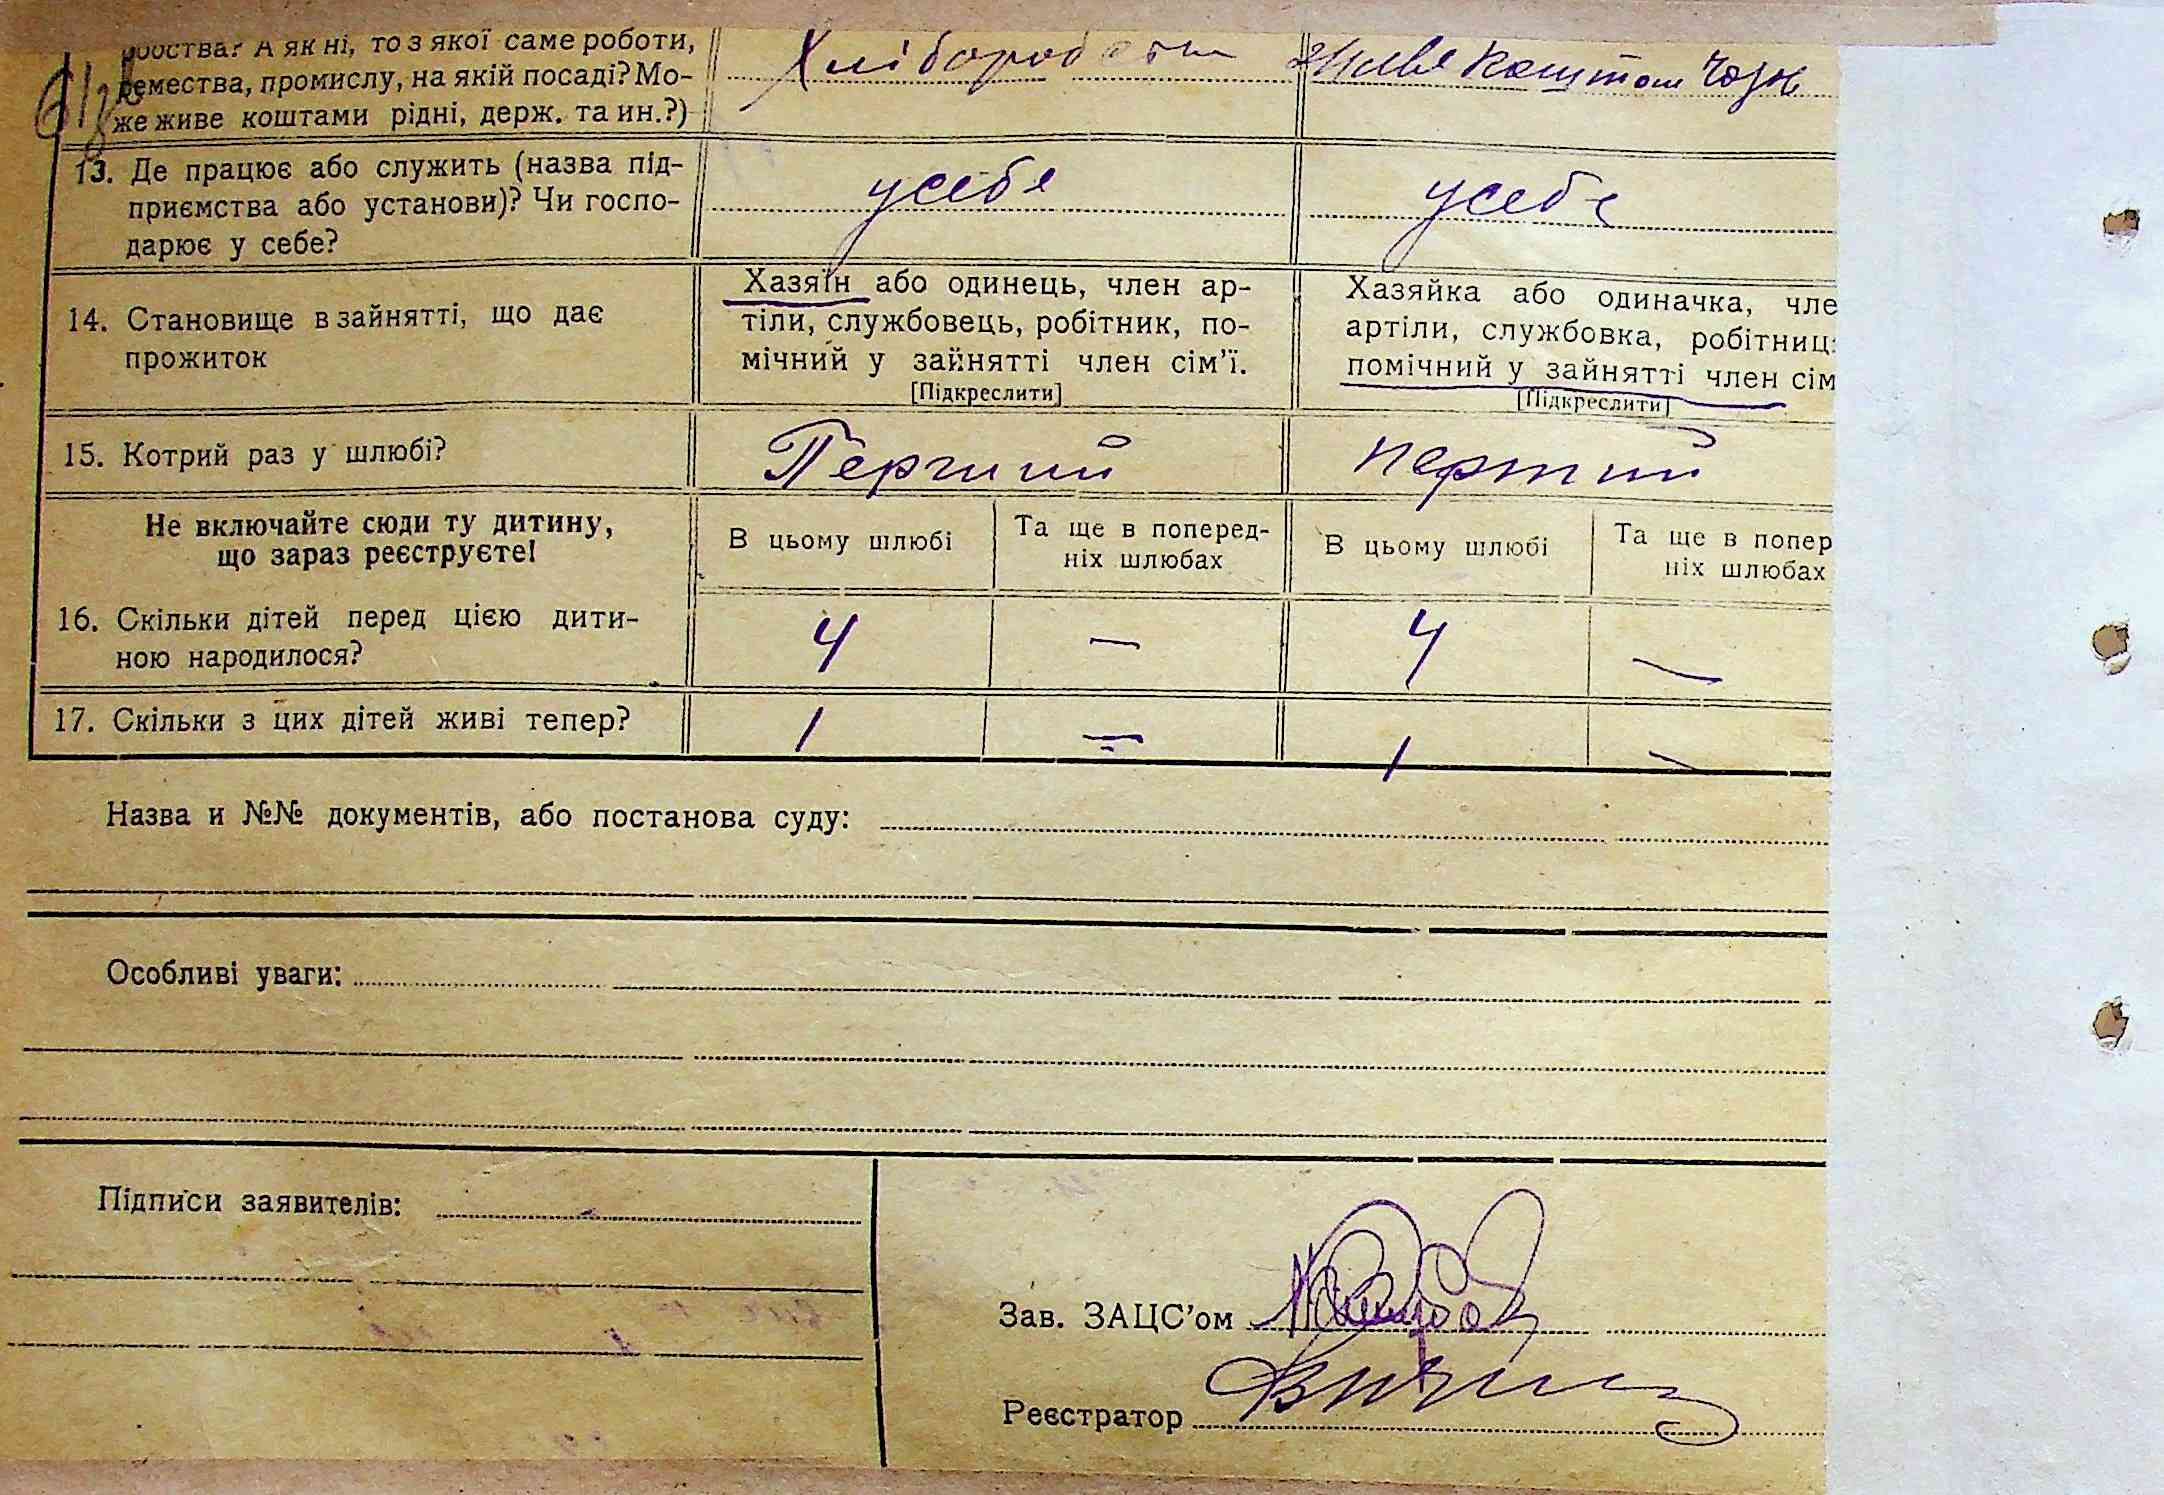 А як ні, то з якої саме роботи,
ремества, промислу, на якій посаді? Мо-
же живе коштами рідні, держ. та ин.?)
Живе коштом
13. Де працює або служить (назва під-
приємства або установи)? Чи госпо-
дарює у себе?
у себе
у себе
14. Становище в зайнятті, що дає
прожиток
Хазяїн або одинець, член ар-
тіли, службовець, робітник, по-
мічний у зайнятті член сім'ї.
[Підкреслити]
Хазяйка або одиначка, чле
артіли, службовка, робітниц
помічний у зайнятті член сім
[Підкреслити]
15. Котрий раз у шлюбі?
Перший
перший
Не включайте сюди ту дитину,
що зараз реєструєте!
В цьому шлюбі
Та ще в поперед-
ніх шлюбах
В цьому шлюбі
Та ще в попер
ніх шлюбах
16. Скільки дітей перед цією дити-
ною народилося?
4
—
4
—
17. Скільки з цих дітей живі тепер?
1
—
1
—
Назва и №№ документів, або постанова суду:
Особливі уваги:
Підписи заявителів:
Зав. ЗАЦС'ом
Реєстратор